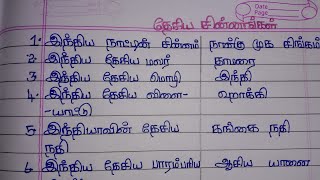 Date
Page
தேசிய சின்னங்கள்
1. இந்திய நாட்டின் சின்னம் நான்கு முக சிங்கம்
2. இந்திய தேசிய மலர் தாமரை
3 இந்திய தேசிய மொழி இந்தி
4. இந்திய தேசிய விளை- ஹாக்கி
-யாட்டு
5 இந்தியாவின் தேசிய கங்கை நதி
நதி
6 இந்திய தேசிய பாரம்பரிய ஆசிய யானை